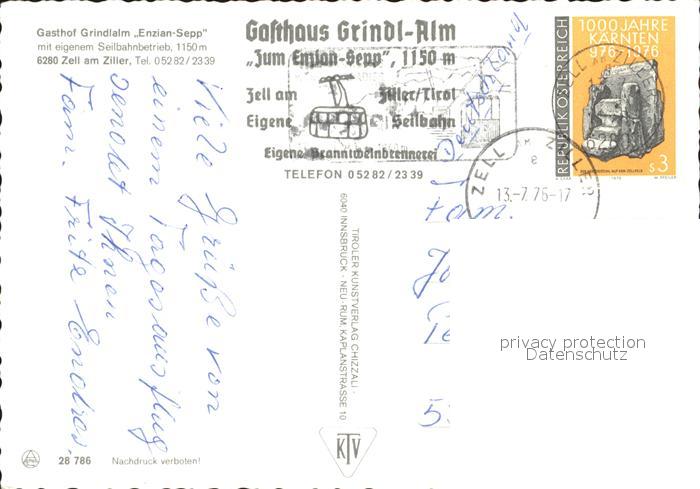 Gasthof Grindlalm „Enzian-Sepp"
mit eigenem Seilbahnbetrieb, 1150 m
6280 Zell am Ziller, Tel. 0 52 82 / 23 39
Gasthaus Grindl-Alm
„Zum Enzian-Sepp", 1150 m
Zell am Ziller/Tirol
Eigene Seilbahn
Eigene Branntweinbrennerei
TELEFON 0 52 82 / 23 39
Deutschland
REPUBLIK ÖSTERREICH
1000 JAHRE
KÄRNTEN
976-1976
S 3
ZELL AM ZILLER
13.-7.76-17
Viele Grüße von
einem Tagesausflug
sendet Ihnen
Fam. Fritz Endres
Fam.
5
TIROLER KUNSTVERLAG CHIZZALI
6040 INNSBRUCK - NEU-RUM, KAPLANSTRASSE 10
KTV
28 786 Nachdruck verboten!
privacy protection
Datenschutz